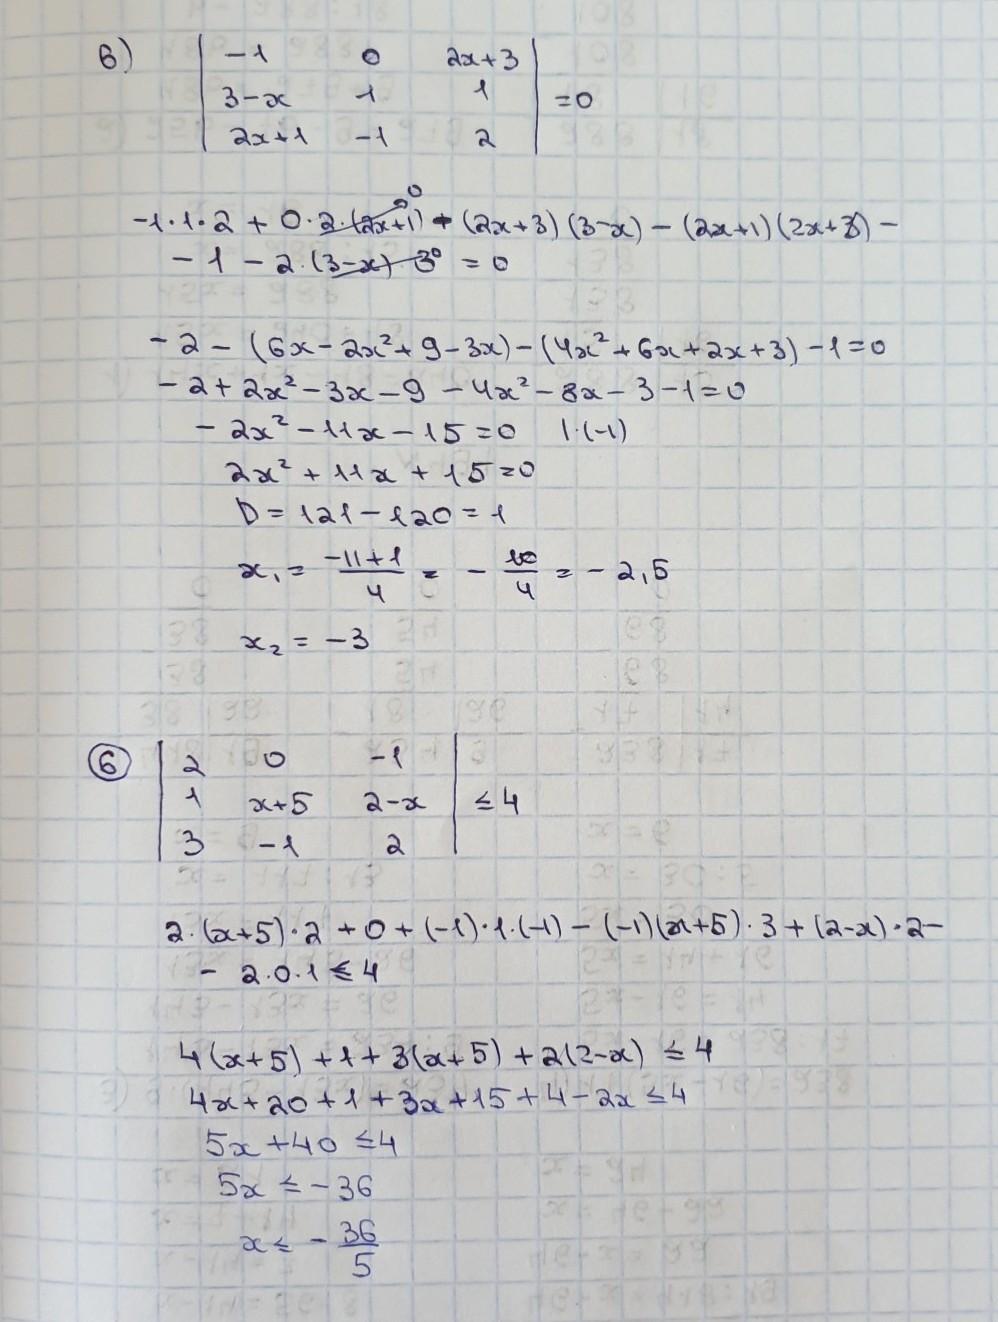 б) | -1 0 2x+3 |
| 3-x 1 1 | =0
| 2x+1 -1 2 |
-1·1·2 + 0·2·(2x+1) - (2x+3)(3-x) - (2x+1)(2x+3) -
- 1 - 2·(3-x)·3 = 0
- 2 - (6x - 2x² + 9 - 3x) - (4x² + 6x + 2x + 3) - 1 = 0
- 2 + 2x² - 3x - 9 - 4x² - 8x - 3 - 1 = 0
- 2x² - 11x - 15 = 0 |·(-1)
2x² + 11x + 15 = 0
D = 121 - 120 = 1
x₁ = (-11+1)/4 = - 10/4 = - 2,5
x₂ = -3
⑥ | 2 0 -1 |
| 1 x+5 2-x | ≤ 4
| 3 -1 2 |
2·(x+5)·2 + 0 + (-1)·1·(-1) - (-1)(x+5)·3 + (2-x)·2 -
- 2·0·1 ≤ 4
4(x+5) + 1 + 3(x+5) + 2(2-x) ≤ 4
4x + 20 + 1 + 3x + 15 + 4 - 2x ≤ 4
5x + 40 ≤ 4
5x ≤ -36
x ≤ - 36/5